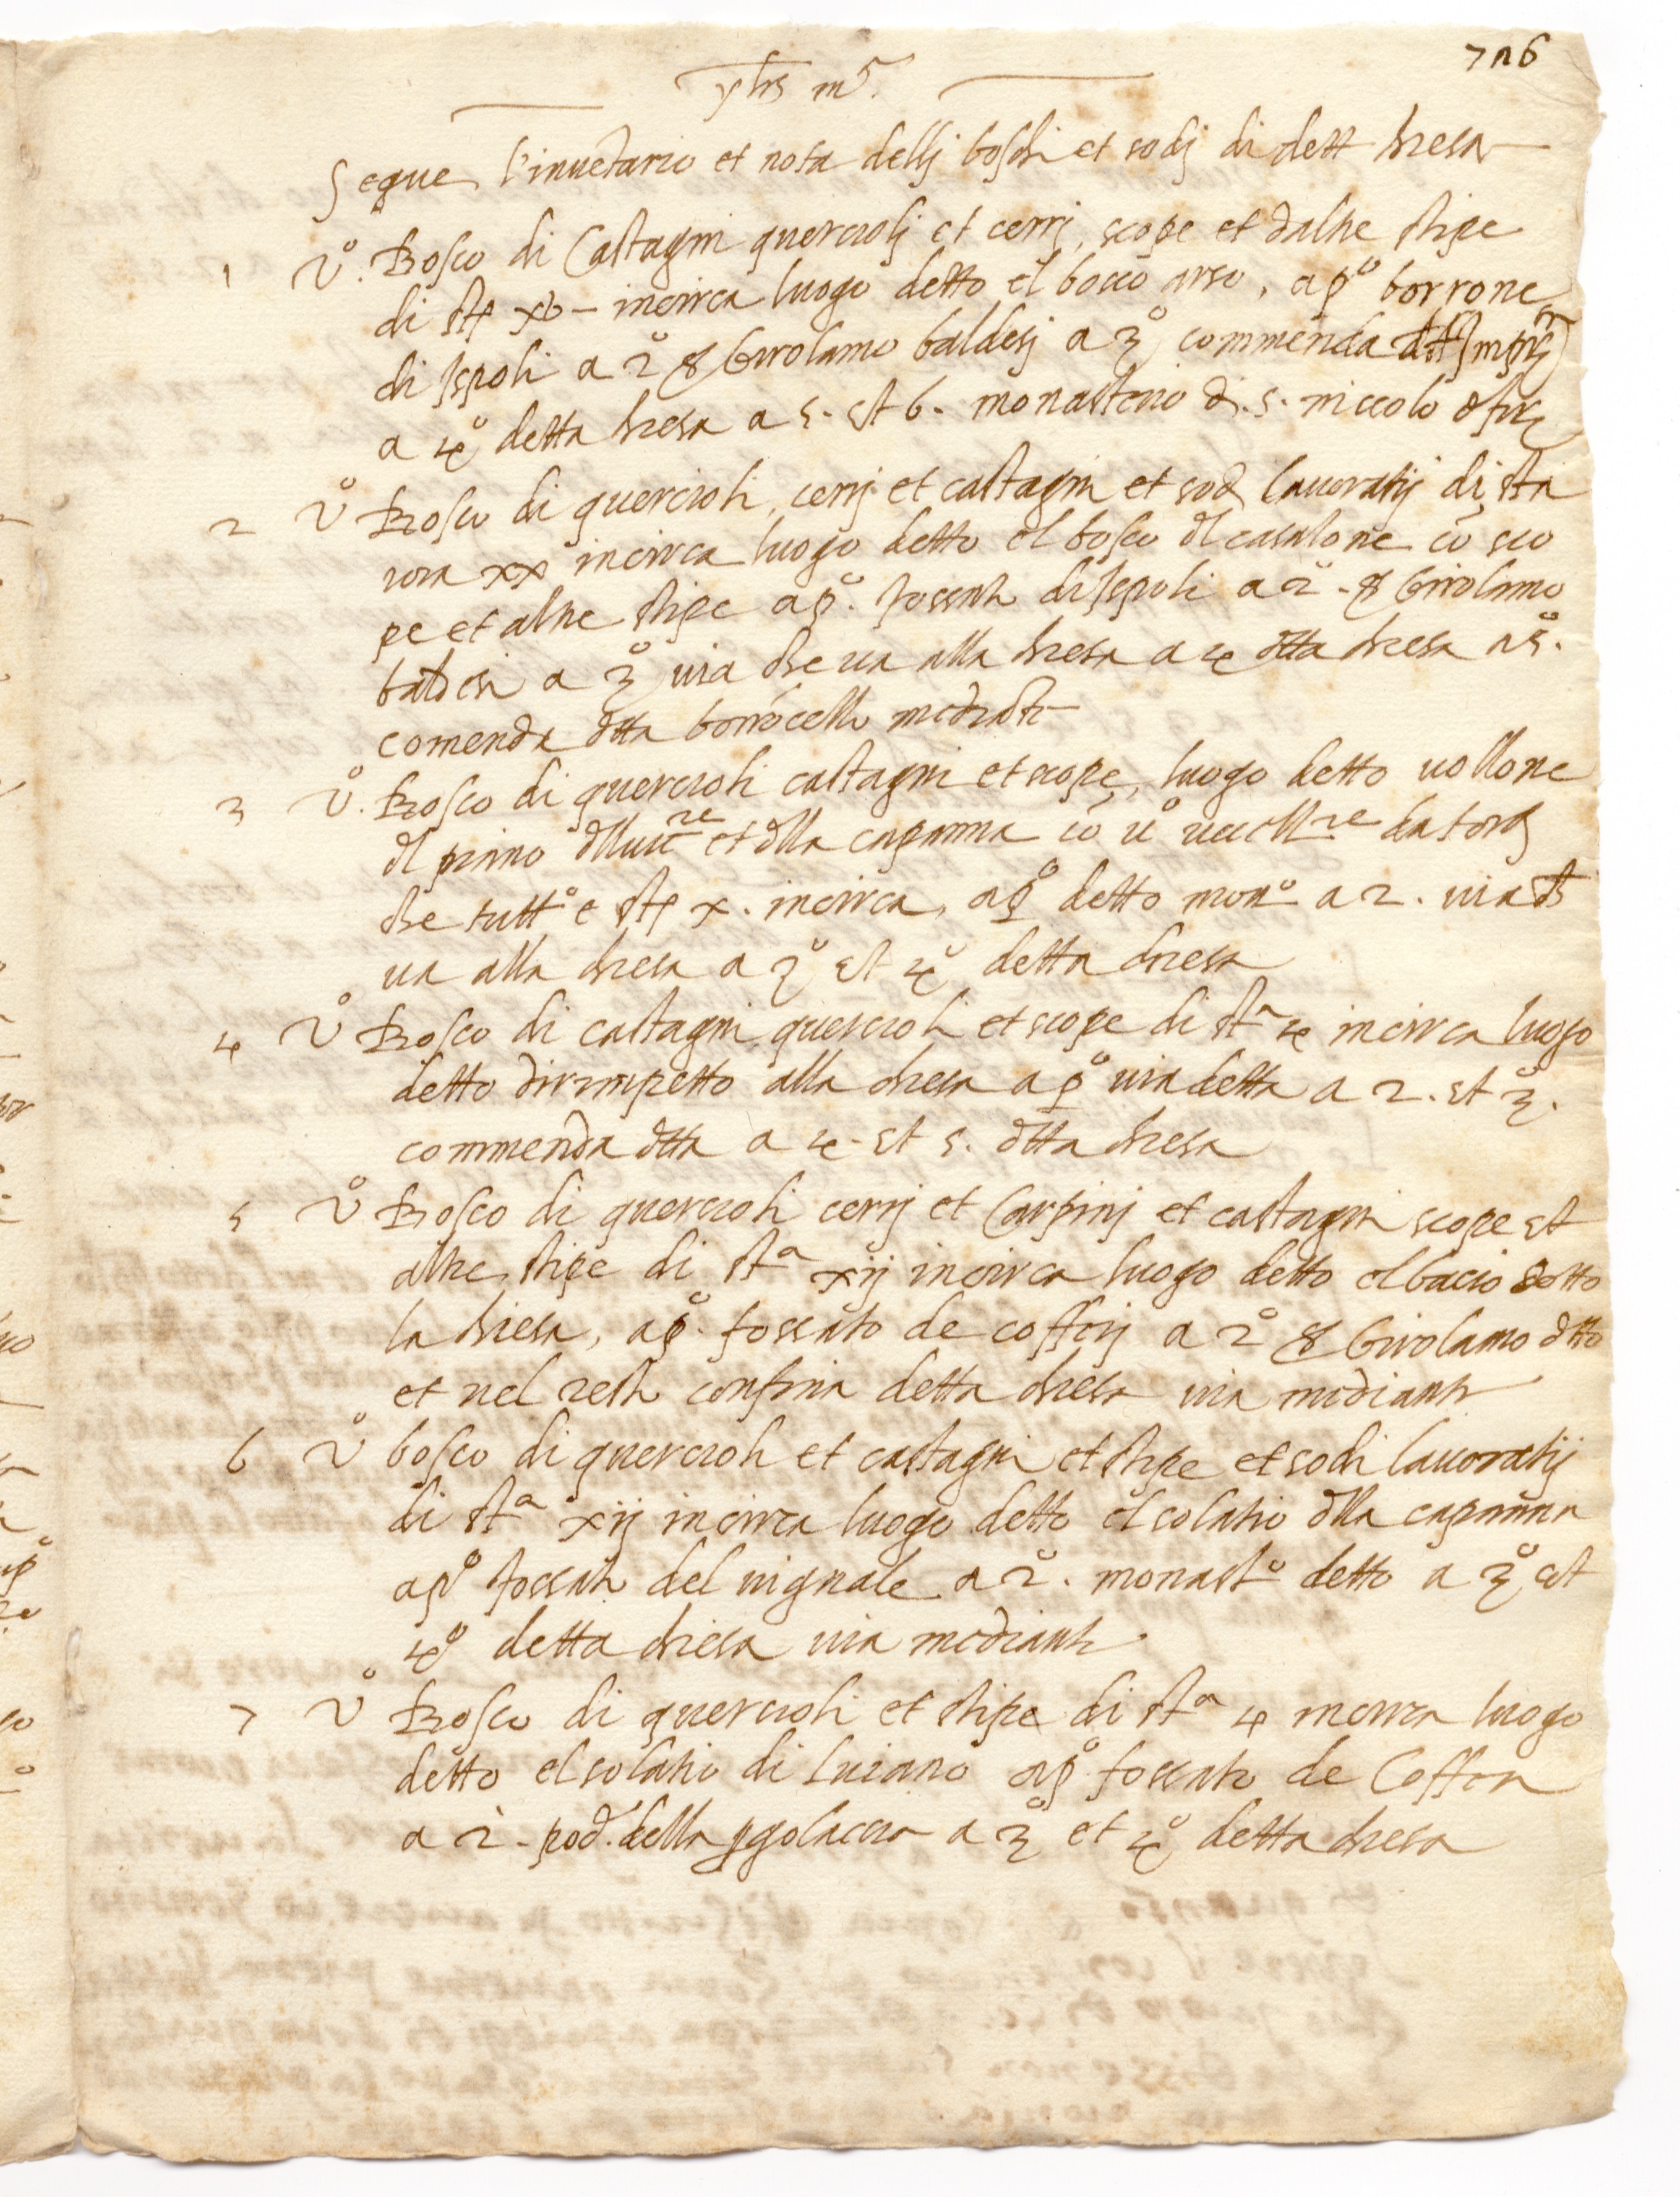 726
yhs mª.
Segue l'inuētario et nota dellj boschi et sodj di dett chiesa
1 Vº. Bosco di Castagni querciolj et cerrj, scope et d altre stipe
di stª xv – incirca luogo detto el bosco arso, a pº borrone
di Ispoli a 2º ß Girolamo baldesj a 3º commenda
a 4º detta chiesa a 5. et 6. monasterio di. S. niccolo
2 Vº Bosco di quercioli, cerrj et castagni et sodi lauoratij di sta
iora xx incirca luogo detto el bosco dl casalone cō sco
pe et altre stipe a pº. fossato di Ispoli a 2º. ß Girolamo
baldesi a 3º uia che ua alla chiesa a 4 dtta chiesa a 5º.
comenda dtta borrōcello mediāte
3 Vº. Bosco di quercioli castagni et scope, luogo detto uallone
dl primo et dlla capanna cō uº uccellre da tordi
che tuttº e stª x. incirca, a pº detto monº a 2. uia ch
ua alla chiesa a 3º et 4º detta chiesa
4 Vº Bosco di castagni quercioli et scope di stª 4 incirca luogo
detto dirimpetto alla chiesa a pº uia detta a 2. et 3º.
commenda dtta a 4. et 5. dtta chiesa
5 Vº Bosco di quercioli cerrj et Carpinj et castagni scope et
altre stipe di stª xij incirca luogo detto el bacio sotto
la chiesa, a pº. fossato de cofferj a 2º ß Girolamo dtto
et nel resto confina detta chiesa uia mediante
6 Vº bosco di quercioli et castagni et stipe et sodi lauoratij
di stª xij incirca luogo detto el solatio dlla capanna
a pº fossato del uignale a 2º. monastº detto a 3º et
4º detta chiesa uia mediante
7 Vº Bosco di quercioli et stipe di stª 4 incirca luogo
detto el solatio di Luciano a pº fossato de Cofferi
a 2º. pod. della pgolaccia a 3º et 4º detta chiesa